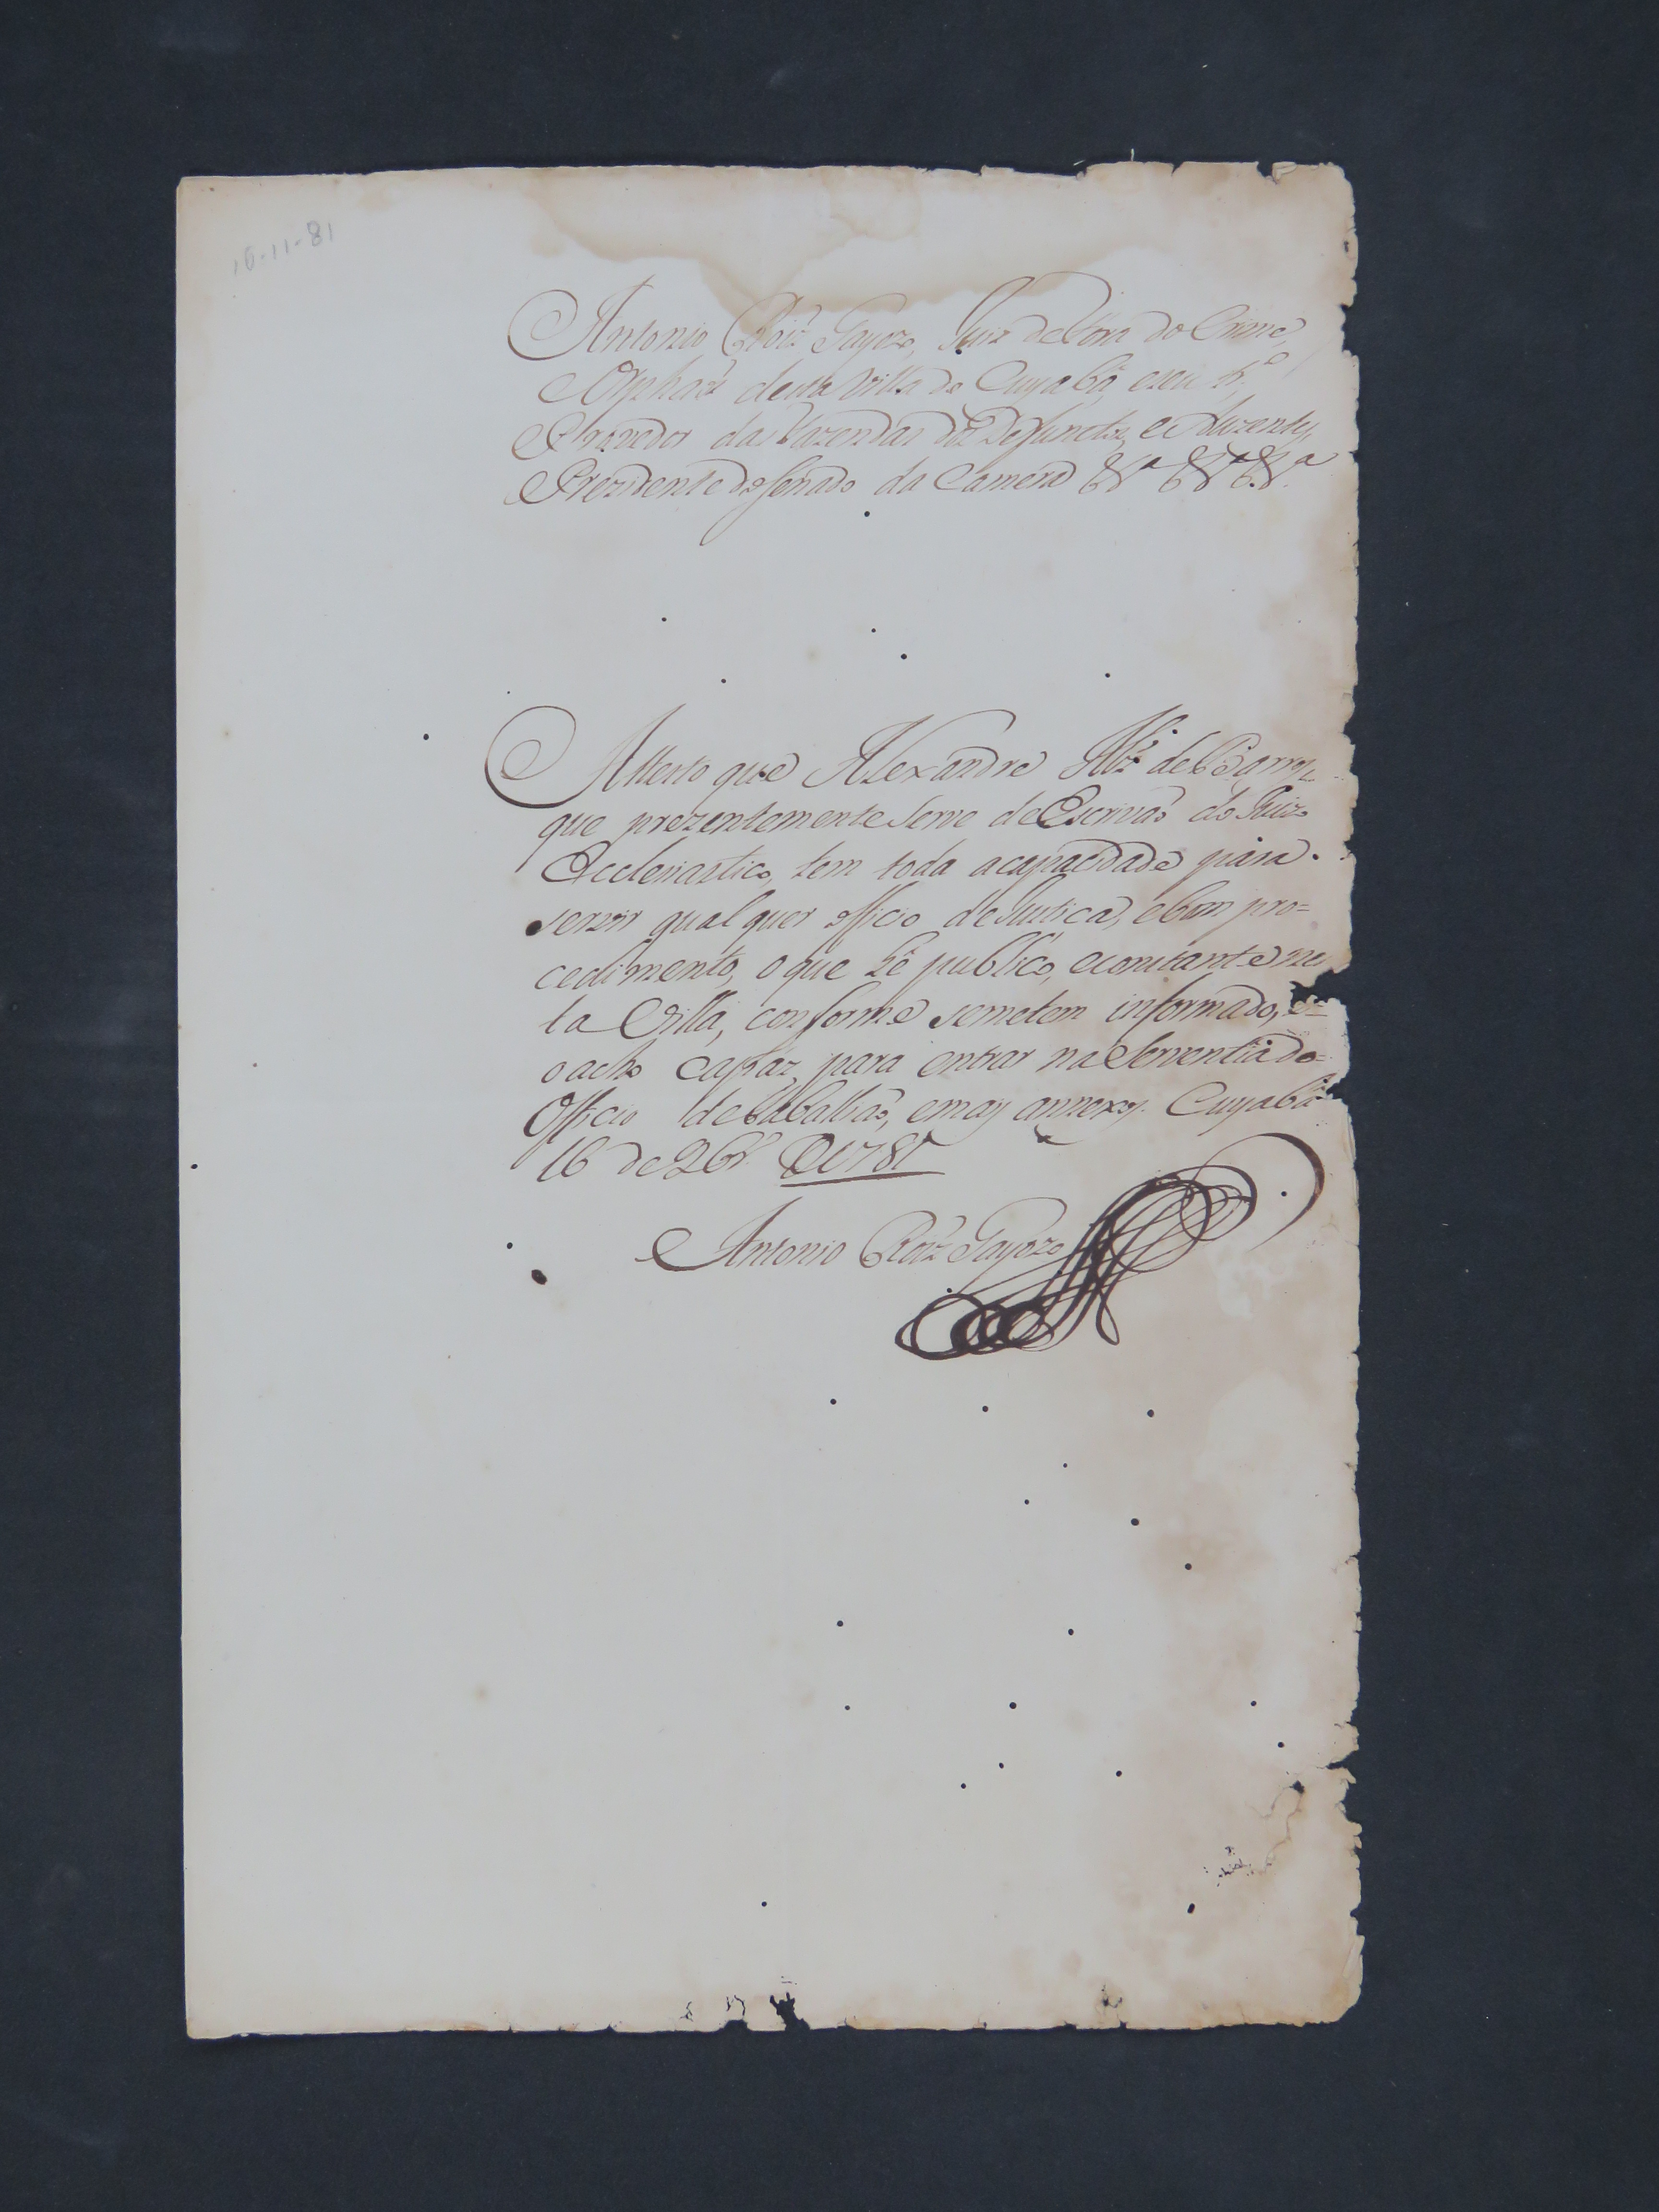 10-11-81
Antonio Roiz Gayozo, Juiz de Fora do Crime,
e Orphaõs desta Villa do Cuyabá, e seu tr.º
Provedor das Fazendas dos Defunctos, e Auzentes,
Prezidente do senado da Camera &ª &ª &ª
Attesto que Alexandre de Barros,
que prezentemente serve de Escrivaõ do Juizo
Ecclesiastico, tem toda a capacidade para
servir qual quer officio de Justica, e bom pro=
cedimento, o que hé publico, e constante nes
ta Villa, conforme se me tem informado, e=
o acho capaz para entrar na Serventia do=
Officio de Taballiaõ, e mais annexos. Cuyabá
16 de 9br.º de 1781
Antonio Roiz Gayozo